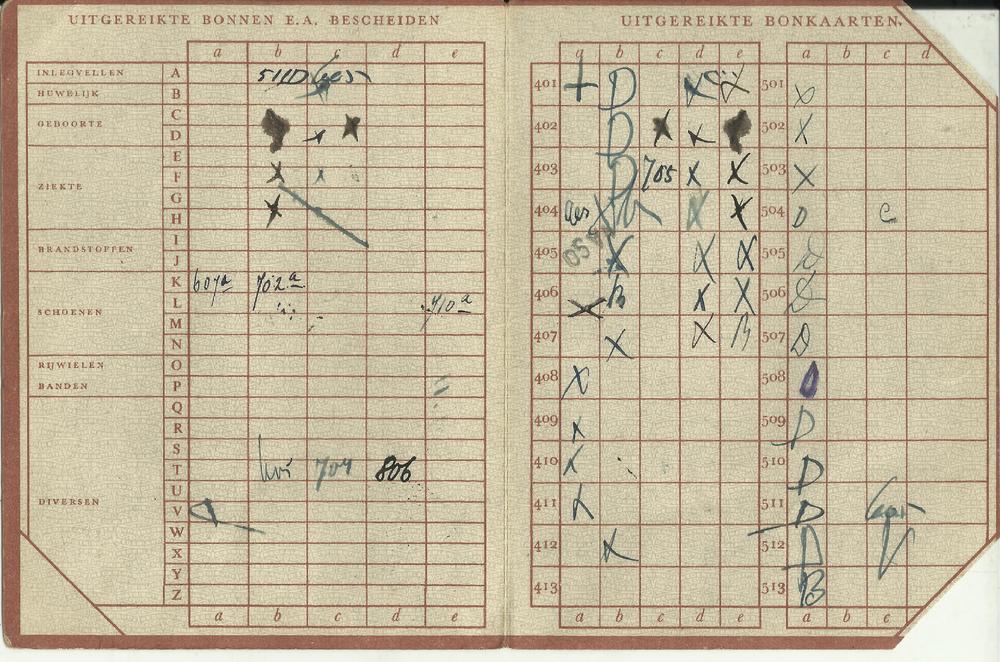 UITGEREIKTE BONNEN E.A. BESCHEIDEN
a b c d e
INLEGVELLEN A
HUWELIJK B
C
GEBOORTE
D
E
F
ZIEKTE
G
H
I
BRANDSTOFFEN
K 607a 702a
L 710a
SCHOENEN
M
N
RIJWIELEN O
BANDEN P
Q
R
S
T 704 806
U
DIVERSEN V
W
X
Y
Z
a b c d e
UITGEREIKTE BONKAARTEN
a b c d e a b c d
401 D X 501 X
402 D X X 502 X
403 D 705 X X 503 X
404 X 504 D c
405 X X X 505
406 X B X X 506
407 X X B 507 D
408 X 508
409 X 509 D
410 X 510 D
411 X 511 D
412 X 512 D
413 513 B
a b c d e a b c d